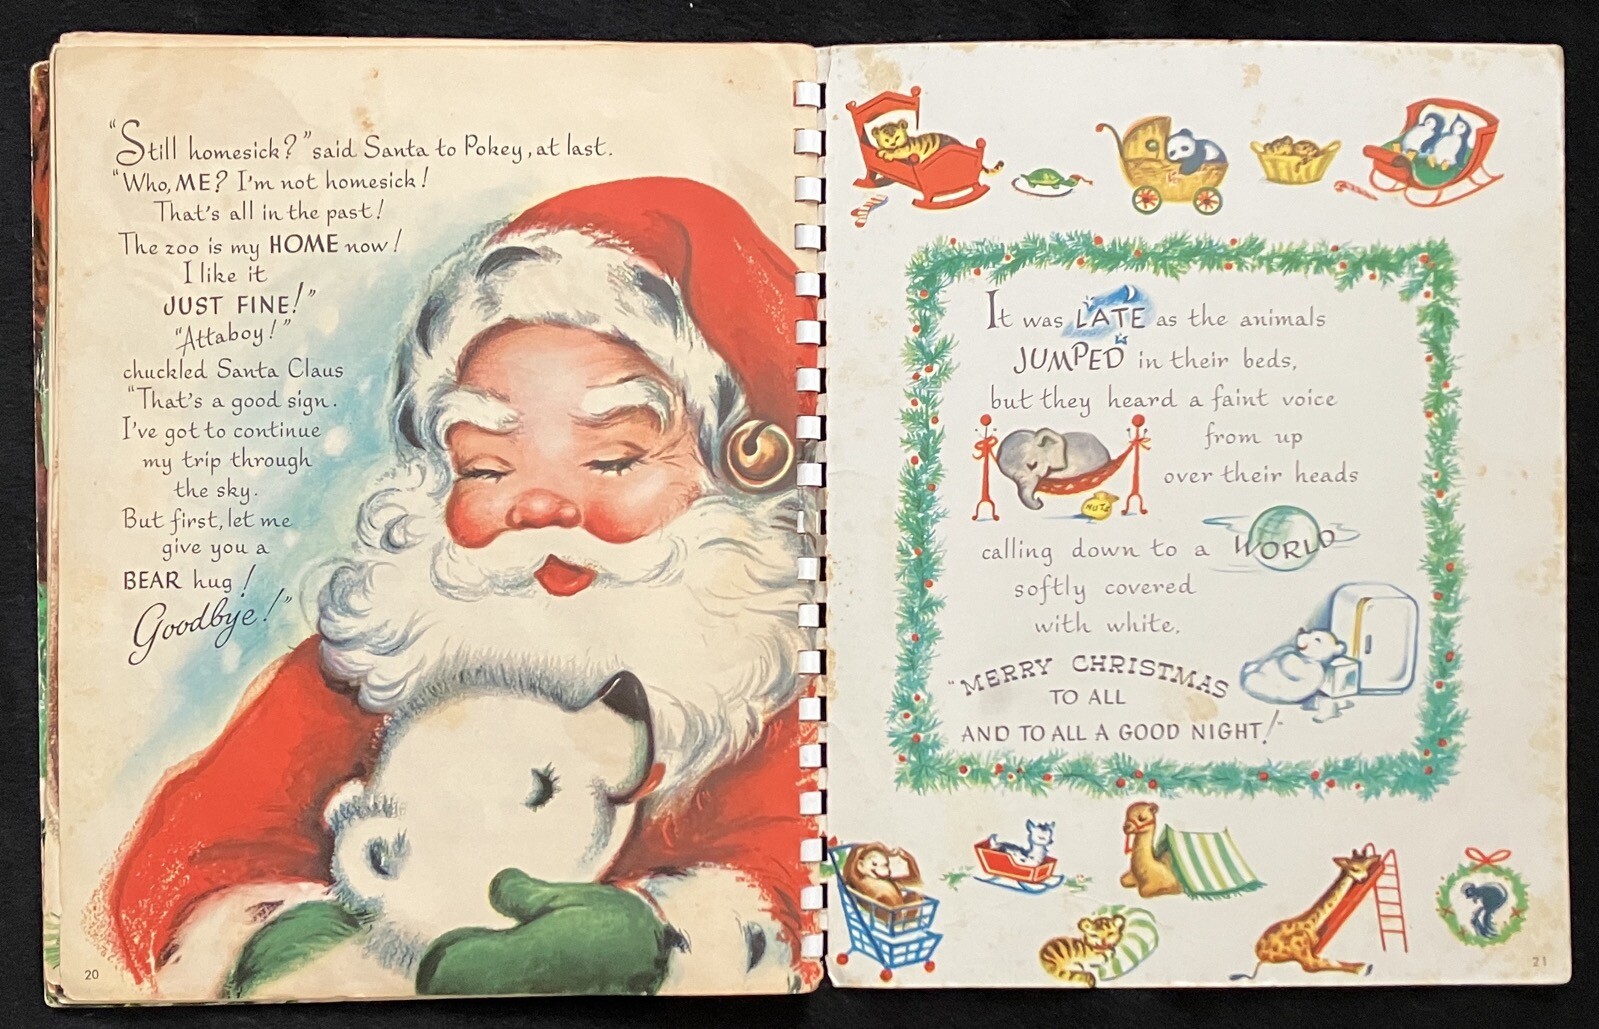 "Still homesick?" said Santa to Pokey, at last.
"Who, ME? I'm not homesick!
That's all in the past!
The zoo is my HOME now!
I like it
JUST FINE!"
"Attaboy!"
chuckled Santa Claus
"That's a good sign.
I've got to continue
my trip through
the sky.
But first, let me
give you a
BEAR hug!
Goodbye!"
20
It was LATE as the animals
JUMPED in their beds,
but they heard a faint voice
from up
over their heads
NUTS
calling down to a WORLD
softly covered
with white,
"MERRY CHRISTMAS
TO ALL
AND TO ALL A GOOD NIGHT!"
21